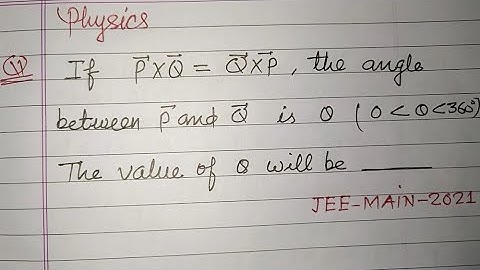 Physics
Q If P⃗ X Q⃗ = Q⃗ X P⃗, the angle
between P⃗ and Q⃗ is θ (0 < θ < 360°)
The value of θ will be ______
JEE-MAIN-2021